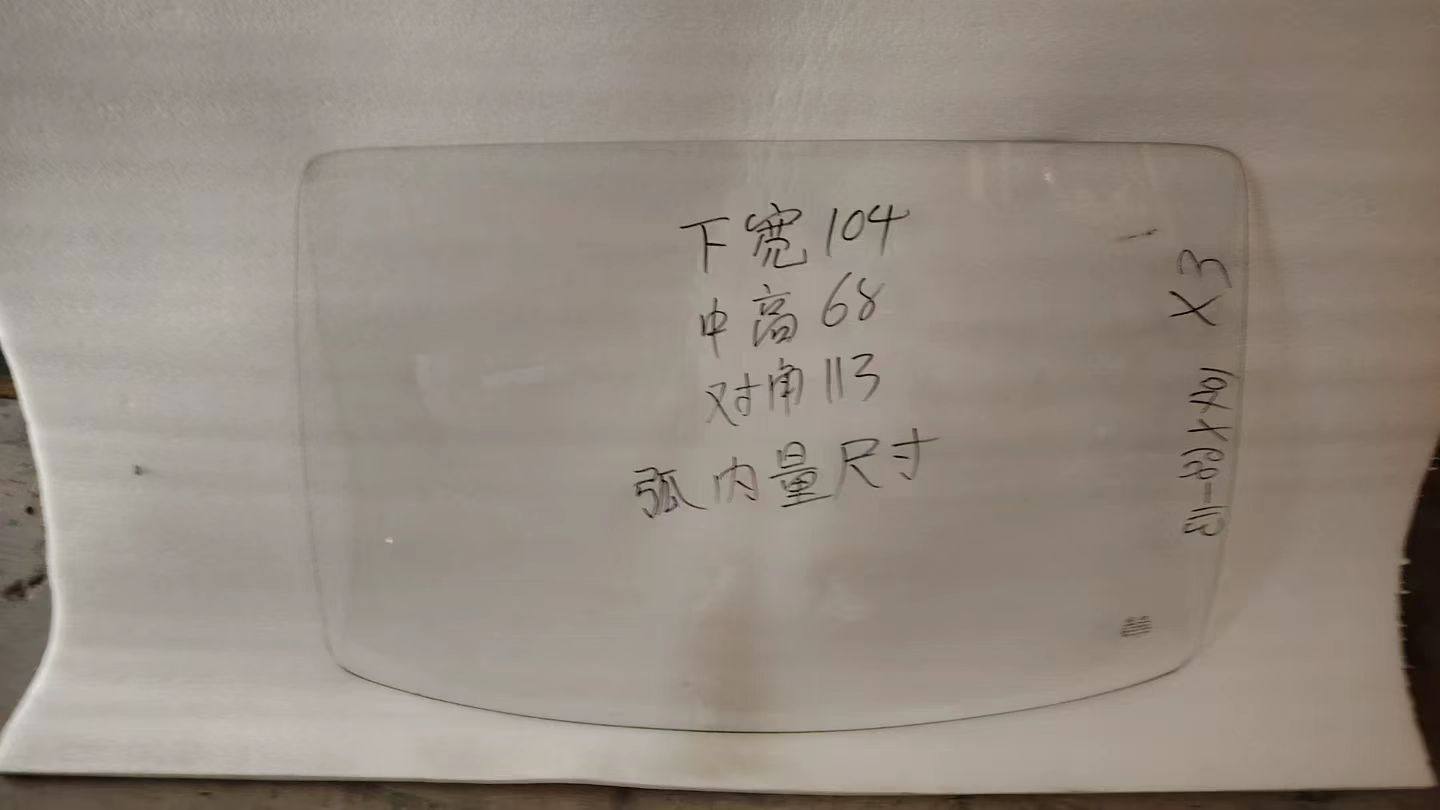 下宽104
中高68
对角113
弧内量尺寸
X3
104X68-113